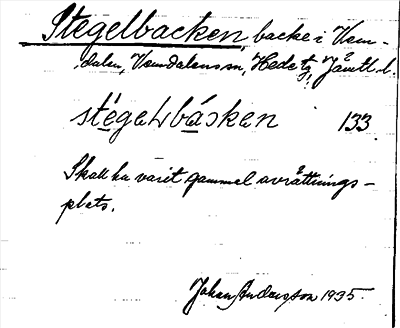 Stegelbacken, backe i Vem-
dalen, Vemdalens sn, Hede tg, Jämtl. l.
stégelbásken 133.
Skall ha varit gammel avrättnings-
plats.
Johan Andersson 1935.